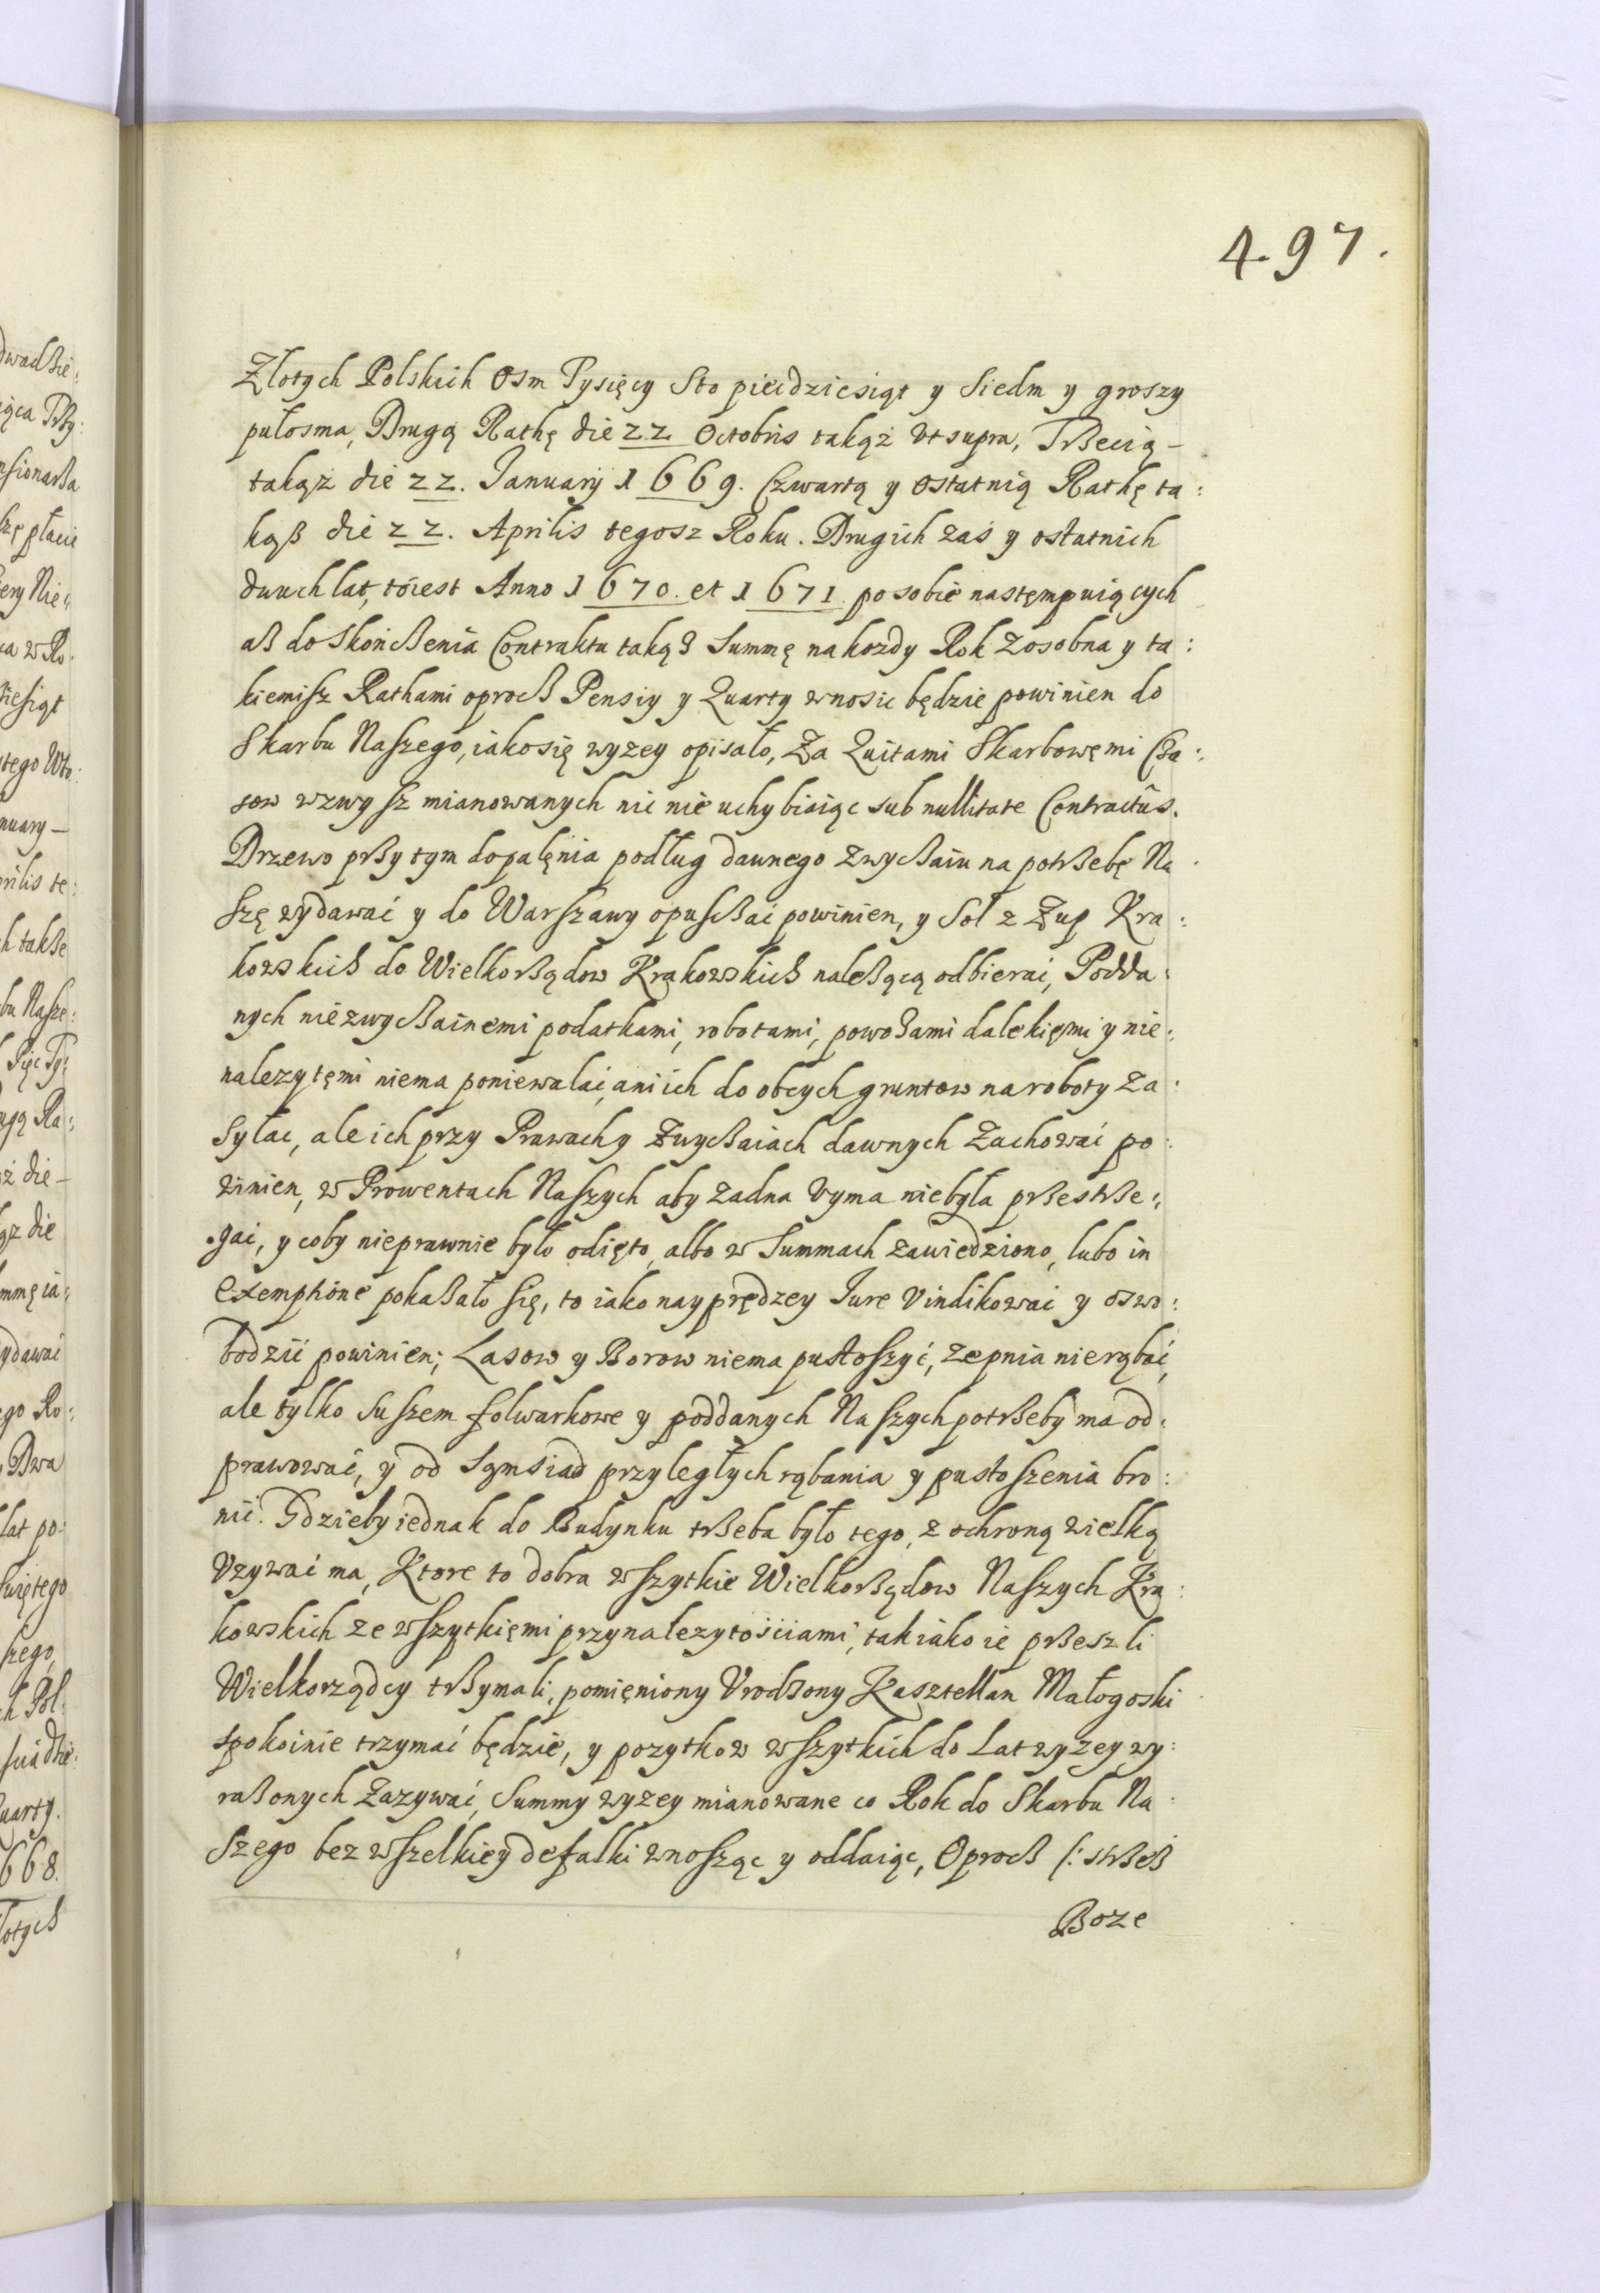 497.
Złotych Polskich Osm Tysięcy Sto piećdziesiąt y Siedm y groszy
pułosma, Drugą Rathę die 22 Octobris takąż Vt supra, Trßecią –
takąż die 22. January 1669. Czwartą y Ostatnią Rathę ta:
kąß die 22. Aprilis tegosz Roku. Drugich zaś y ostatnich
dwuch lat, toiest Anno 1670. et 1671. po sobie nastęmpuiących
aß do Skońcßenia Contraktu takąż Summę na kozdy Rok Zosobna y ta:
kiemisz Rathami oprocß Pensiy y Quarty wnosic będzie powinien do
Skarbu Naszego, iako się wyzey opisało, Za Quitami Skarbowęmi Cza:
sow wzwysz mianowanych nic nie uchybiaiąc sub nullitate Contractûs.
Drzewo prßy tym do palęnia podług dawnego zwycßaiu na potrßebę Na
szę wydawać y do Warszawy opuscßać powinien, y Sol z Zup Kra:
kowskich do Wielkorßądow Krakowskich naleßącą odbierać, Podda:
nych niezwycßainemi podatkami, robotami, powoßami dalekięmi y nie:
nalezytęmi niema poniewalać, ani ich do obcych gruntow na roboty Za:
syłac, ale ich przy Prawach y Zwycßaiach dawnych Zachować po:
winien, w Prowentach Naszych aby Zadna Vyma niebyła prßestrße:
gać, y coby nieprawnie było odięto, albo w Summach zawiedziono, lubo in
exemptione pokaßało się, to iako nayprędzey Iure Vindikować y oswo:
bodzić powinien; Lasow y Borow niema pustoszyć, ze pnia nierąbać,
ale tylko Suszem folwarkowe y poddanych Naszych potrßeby ma od:
prawować, y od Sąmsiad przyległych rąbania y pustoszenia bro:
nić. Gdzieby iednak do Budynku trßeba było tego, z ochroną wielką
Vzywać ma, Ktore to dobra wszytkie Wielkorßądow Naszych Kra:
kowskich ze wszytkięmi przynalezytościami, tak iako ie prßeszli
Wielkorządcy trßymali, pomięniony Vrodßony Kasztellan Małogoski
spokoinie trzymać będzie, y pozytkow wszytkich do Lat wyzey wy:
raßonych Zazywać, Summy wyzey mianowane co Rok do Skarbu Na
szego bez wszelkiey defalki wnosząc y oddaiąc, Oprocß /: strßeß
Boze